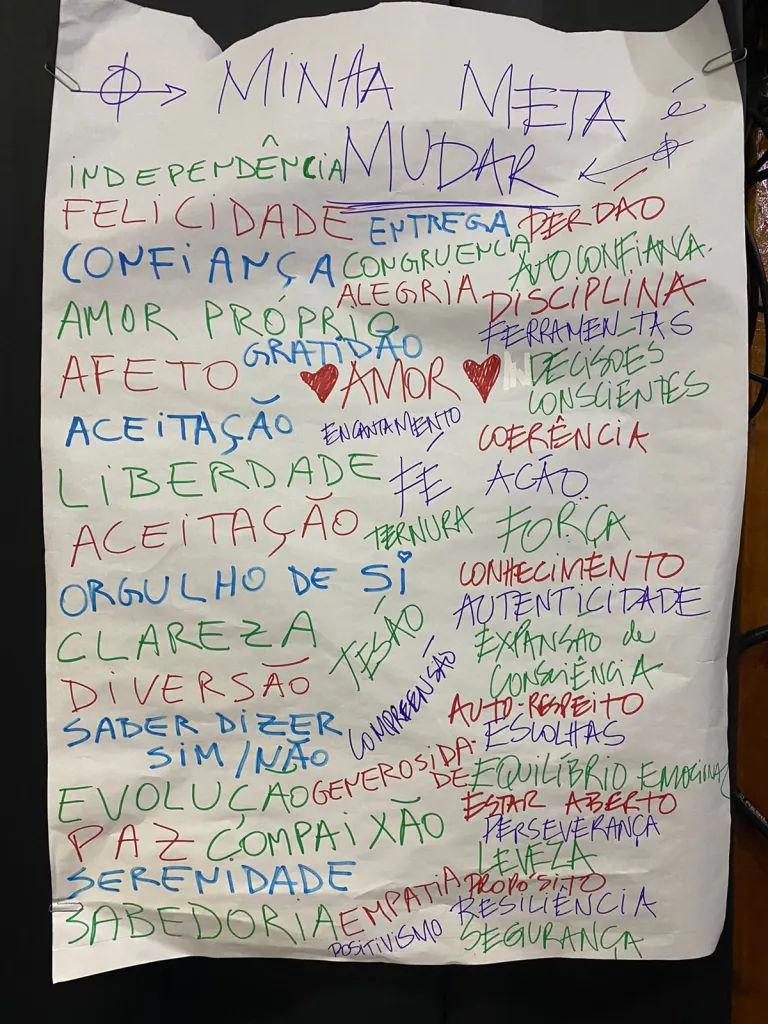 MINHA META é
MUDAR
INDEPENDÊNCIA
FELICIDADE
CONFIANÇA
AMOR PRÓPRIO
AFETO
ACEITAÇÃO
LIBERDADE
ACEITAÇÃO
ORGULHO DE SI
CLAREZA
DIVERSÃO
SABER DIZER
SIM/NÃO
EVOLUÇAO
PAZ
SERENIDADE
SABEDORIA
ENTREGA
CONGRUENCIA
ALEGRIA
GRATIDÃO
AMOR
ENCANTAMENTO
FÉ
TERNURA
TESÃO
COMPREENSÃO
GENEROSIDA-
DE
COMPAIXÃO
EMPATIA
POSITIVISMO
PERDÃO
AUTOCONFIANÇA.
DISCIPLINA
FERRAMENTAS
DECISÕES
CONSCIENTES
COERÊNCIA
AÇÃO
FORÇA
CONHECIMENTO
AUTENTICIDADE
EXPANSÃO de
CONSCIÊNCIA
AUTO-RESPEITO
ESCOLHAS
EQUILÍBRIO EMOCIONAL
ESTAR ABERTO
PERSEVERANÇA
LEVEZA
PROPÓSITO
RESILIÊNCIA
SEGURANÇA